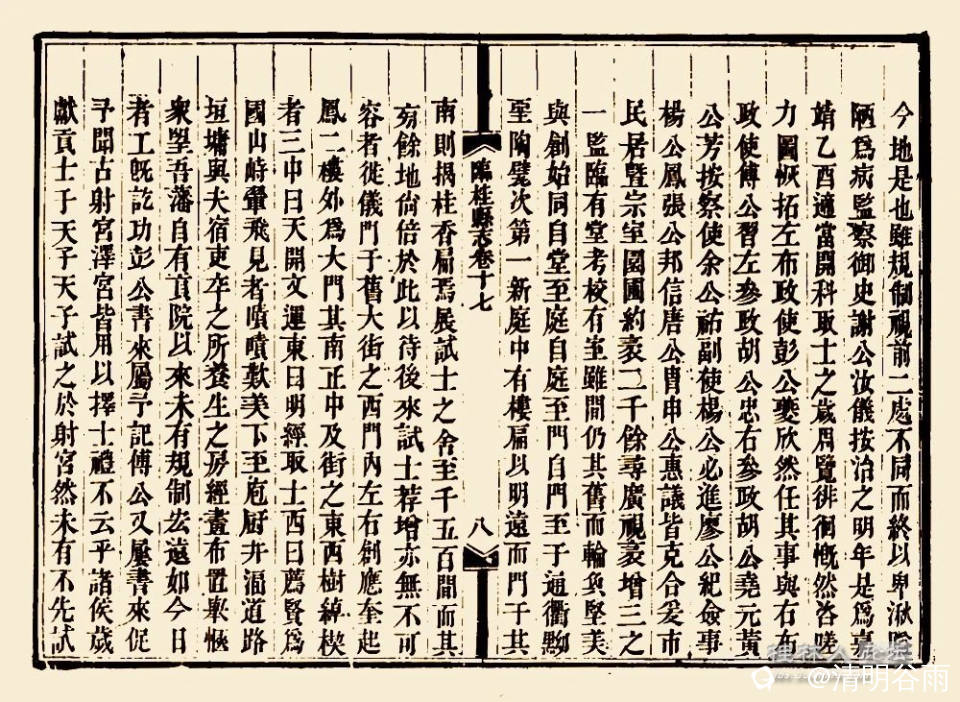 今地是也雖規制視前二處不同而終以卑湫隘
陋爲病監察御史謝公汝儀按治之明年是爲嘉
靖乙酉適當開科取士之歲周覽徘徊慨然咨嗟
力圖恢拓左布政使彭公夔欣然任其事與右布
政使傅公習左參政胡公忠右參政胡公堯元黃
公芳按察使余公祐副使楊公必進廖公紀僉事
楊公鳳張公邦信唐公冑申公惠議皆克合爰市
民居暨宗室園圃約袤二千餘尋廣視袤增三之
一監臨有堂考校有室雖間仍其舊而輪奐堅美
與創始同自堂至庭自庭至門自門至于通衢黝
堊陶甓次第一新庭中有樓扁以明遠而門于其
臨桂縣志卷十七
八
南則揭桂香扁焉展試士之舍至千五百間而其
旁餘地尙倍於此以待後來試士荐增亦無不可
容者徙儀門于舊大街之西門內左右創應奎起
鳳二樓外爲大門其南正中及街之東西樹綽楔
者三中曰天開文運東曰明經取士西曰薦賢爲
國山峙翬飛見者嘖嘖歎美下至庖廚井湢道路
垣墉與夫宿吏卒之所養生之房經畫布置畢愜
衆望吾藩自有貢院以來未有規制宏遠如今日
者工旣訖功彭公書來屬予記傅公又屢書來促
予聞古射宮澤宮皆用以擇士禮不云乎諸侯歲
獻貢士于天子天子試之於射宮然未有不先試
桂林人論壇
@清明谷雨